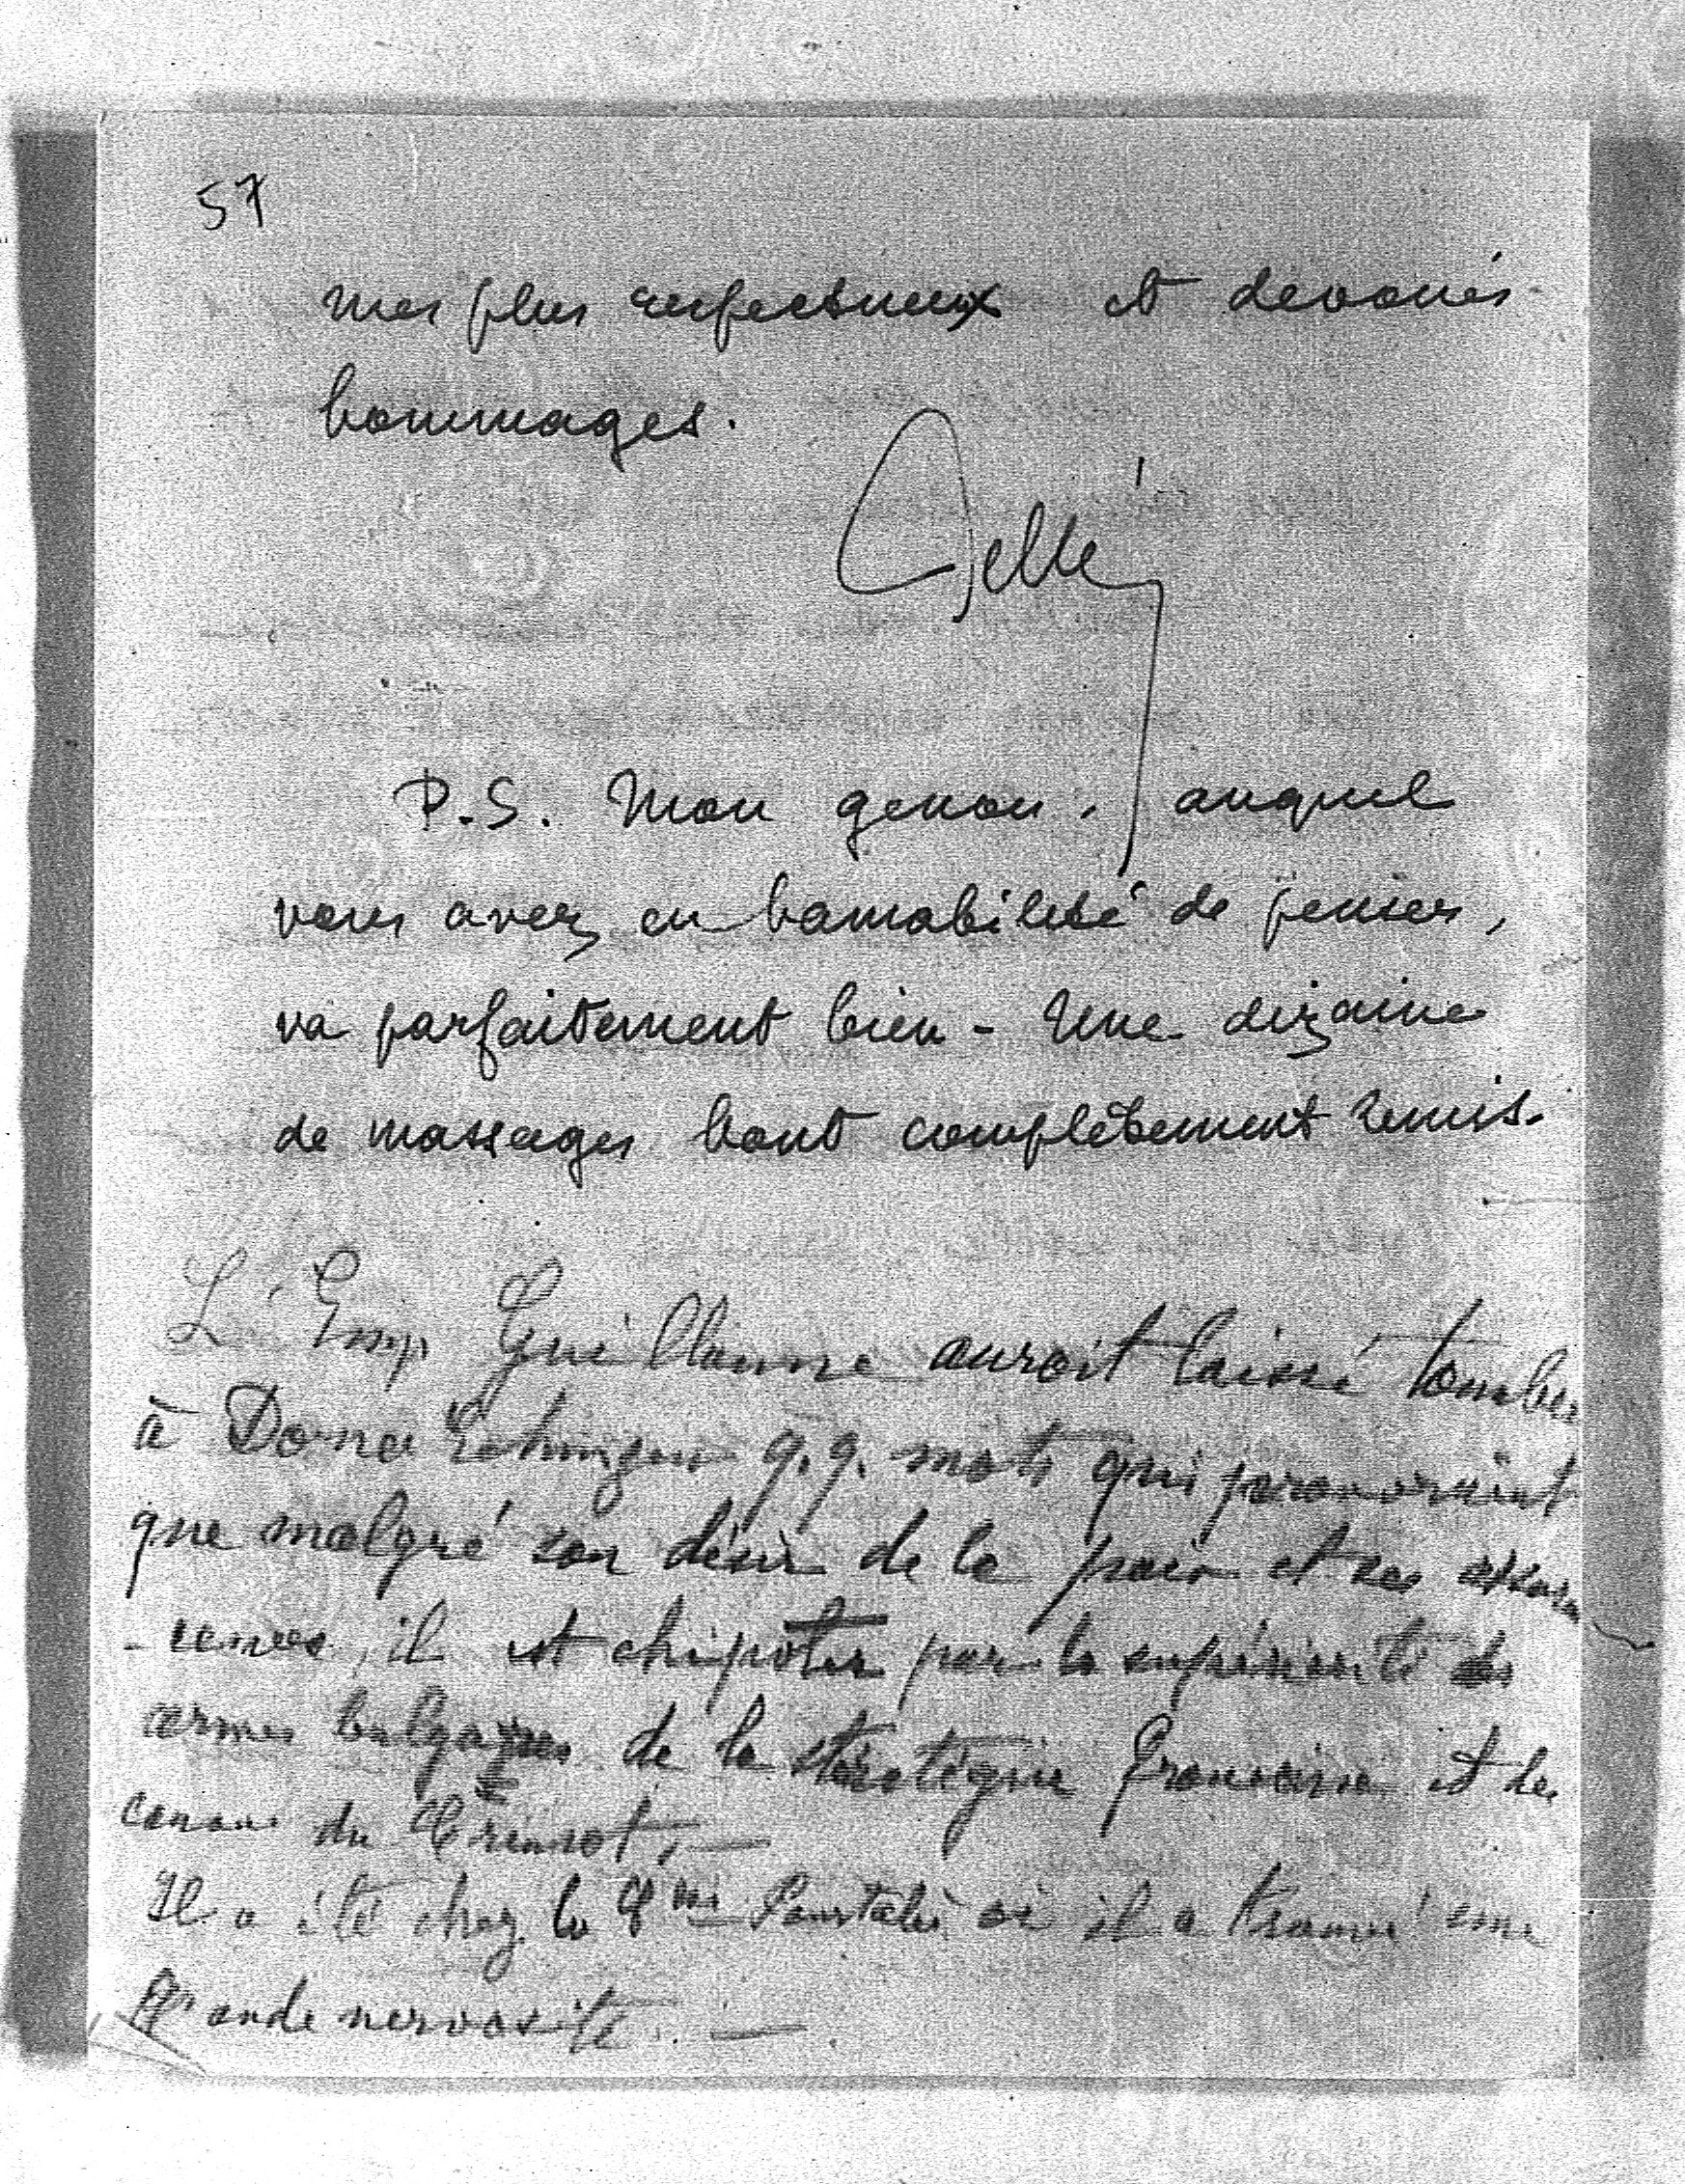 57
mes plus respectueux et dévoués
hommages.
P.S. Mon genou, auquel
vous avez eu l'amabilité de penser,
va parfaitement bien - Une dizaine
de massages l'ont complètement remis.
L'Emp Guillaume aurait laissé tomber
à Donau Eshingen q.q. mots qui prouveraient
que malgré son désir de la paix et ses assu
-rances, il est chipoter par la supériorité des
armes bulgares de la stratégie française et des
canons du Creusot. —
Il a été chez la Csse Pourtalès où il a trouvé une
grande nervosité. —